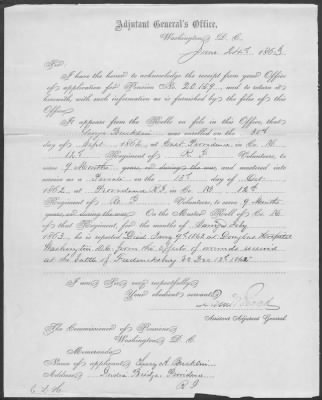 Adjutant General's Office,
Washington, D. C.
June 24th, 1863
Sir:
I have the honor to acknowledge the receipt from your Office
of application for Pension No. 20,169, and to return it
herewith, with such information as is furnished by the files of this
Office.
It appears from the Rolls on file in this Office, that
George Bucklin was enrolled on the
day of Sept, 1862, at East Providence, in Co. H
12th Regiment of R. I. Volunteers, to serve
9 Months years, or during the war, and mustered into
service as a Private on the 13th day of Oct.
1862, at Providence R.I., in Co. H, 12th
Regiment of R. I. Volunteers, to serve 9 Months
years, or during the war. On the Muster Roll of Co. H
of that Regiment, for the months of Jan & Feby
1863, he is reported Died Jany 9th 1863 at Douglas Hospital
Washington D.C. from the effects of wounds received
at the battle of Fredericksburg Va Dec 13th 1862
I am, Sir, very respectfully,
Your obedient servant,
Assistant Adjutant General.
The Commissioner of Pensions,
Washington, D. C.
Memoranda:
Name of applicant, A. Bucklin
Address, India Bridge, Providence
R I